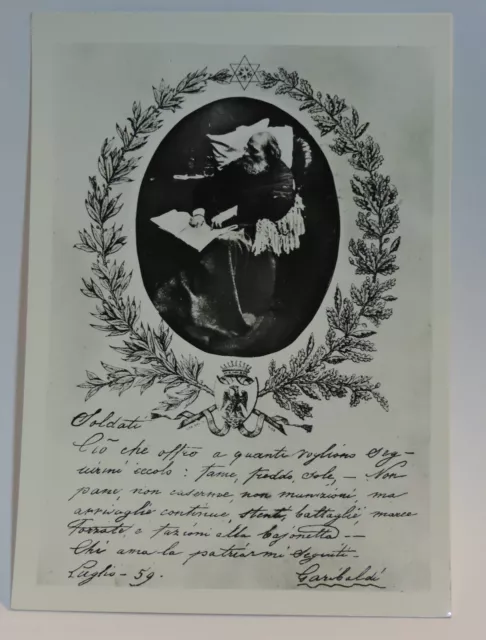 Soldati
Ciò che offro a quanti vogliono Seg-
uirmi eccolo: fame, freddo, sole, - Non
pane, non caserme, non munizioni, ma
avvisaglie continue, stenti, battaglie, marce
Forzate e fazioni alla bajonetta --
Chi ama la patria mi seguiti -
Luglio - 59. Garibaldi